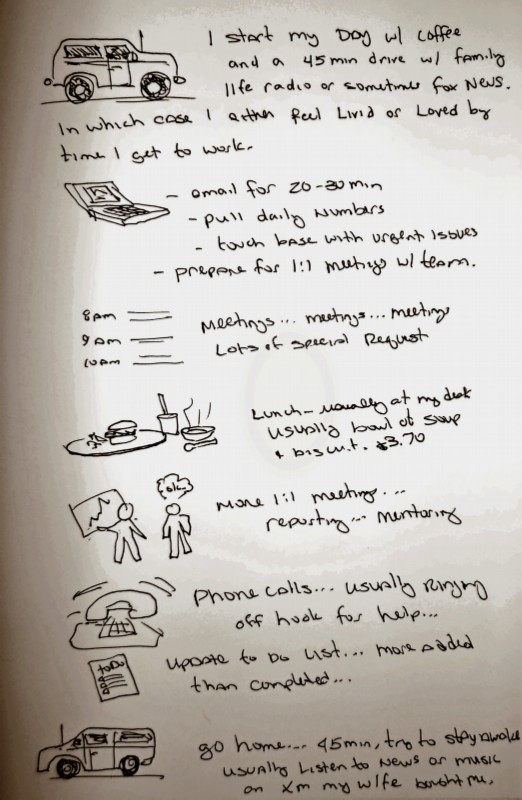 I start my Day w/ coffee
and a 45 min drive w/ family
life radio or sometimes fox News.
In which case I either feel Livid or Loved by
time I get to work.
- email for 20-30 min
- pull daily numbers
- touch base with urgent issues
- prepare for 1:1 meetings w/ team.
8am
9am
10am
Meetings... meetings... meetings
Lots of special Request
Lunch - usually at my desk
usually bowl of soup
+ biscuit. $3.70
ok..
More 1:1 meeting....
reporting... mentoring
Phone calls... usually Ringing
off hook for help...
toDo
update to Do List... more added
than completed...
go home.... 45min, try to stay awake
usually Listen to News or music
on Xm my wife bought me.